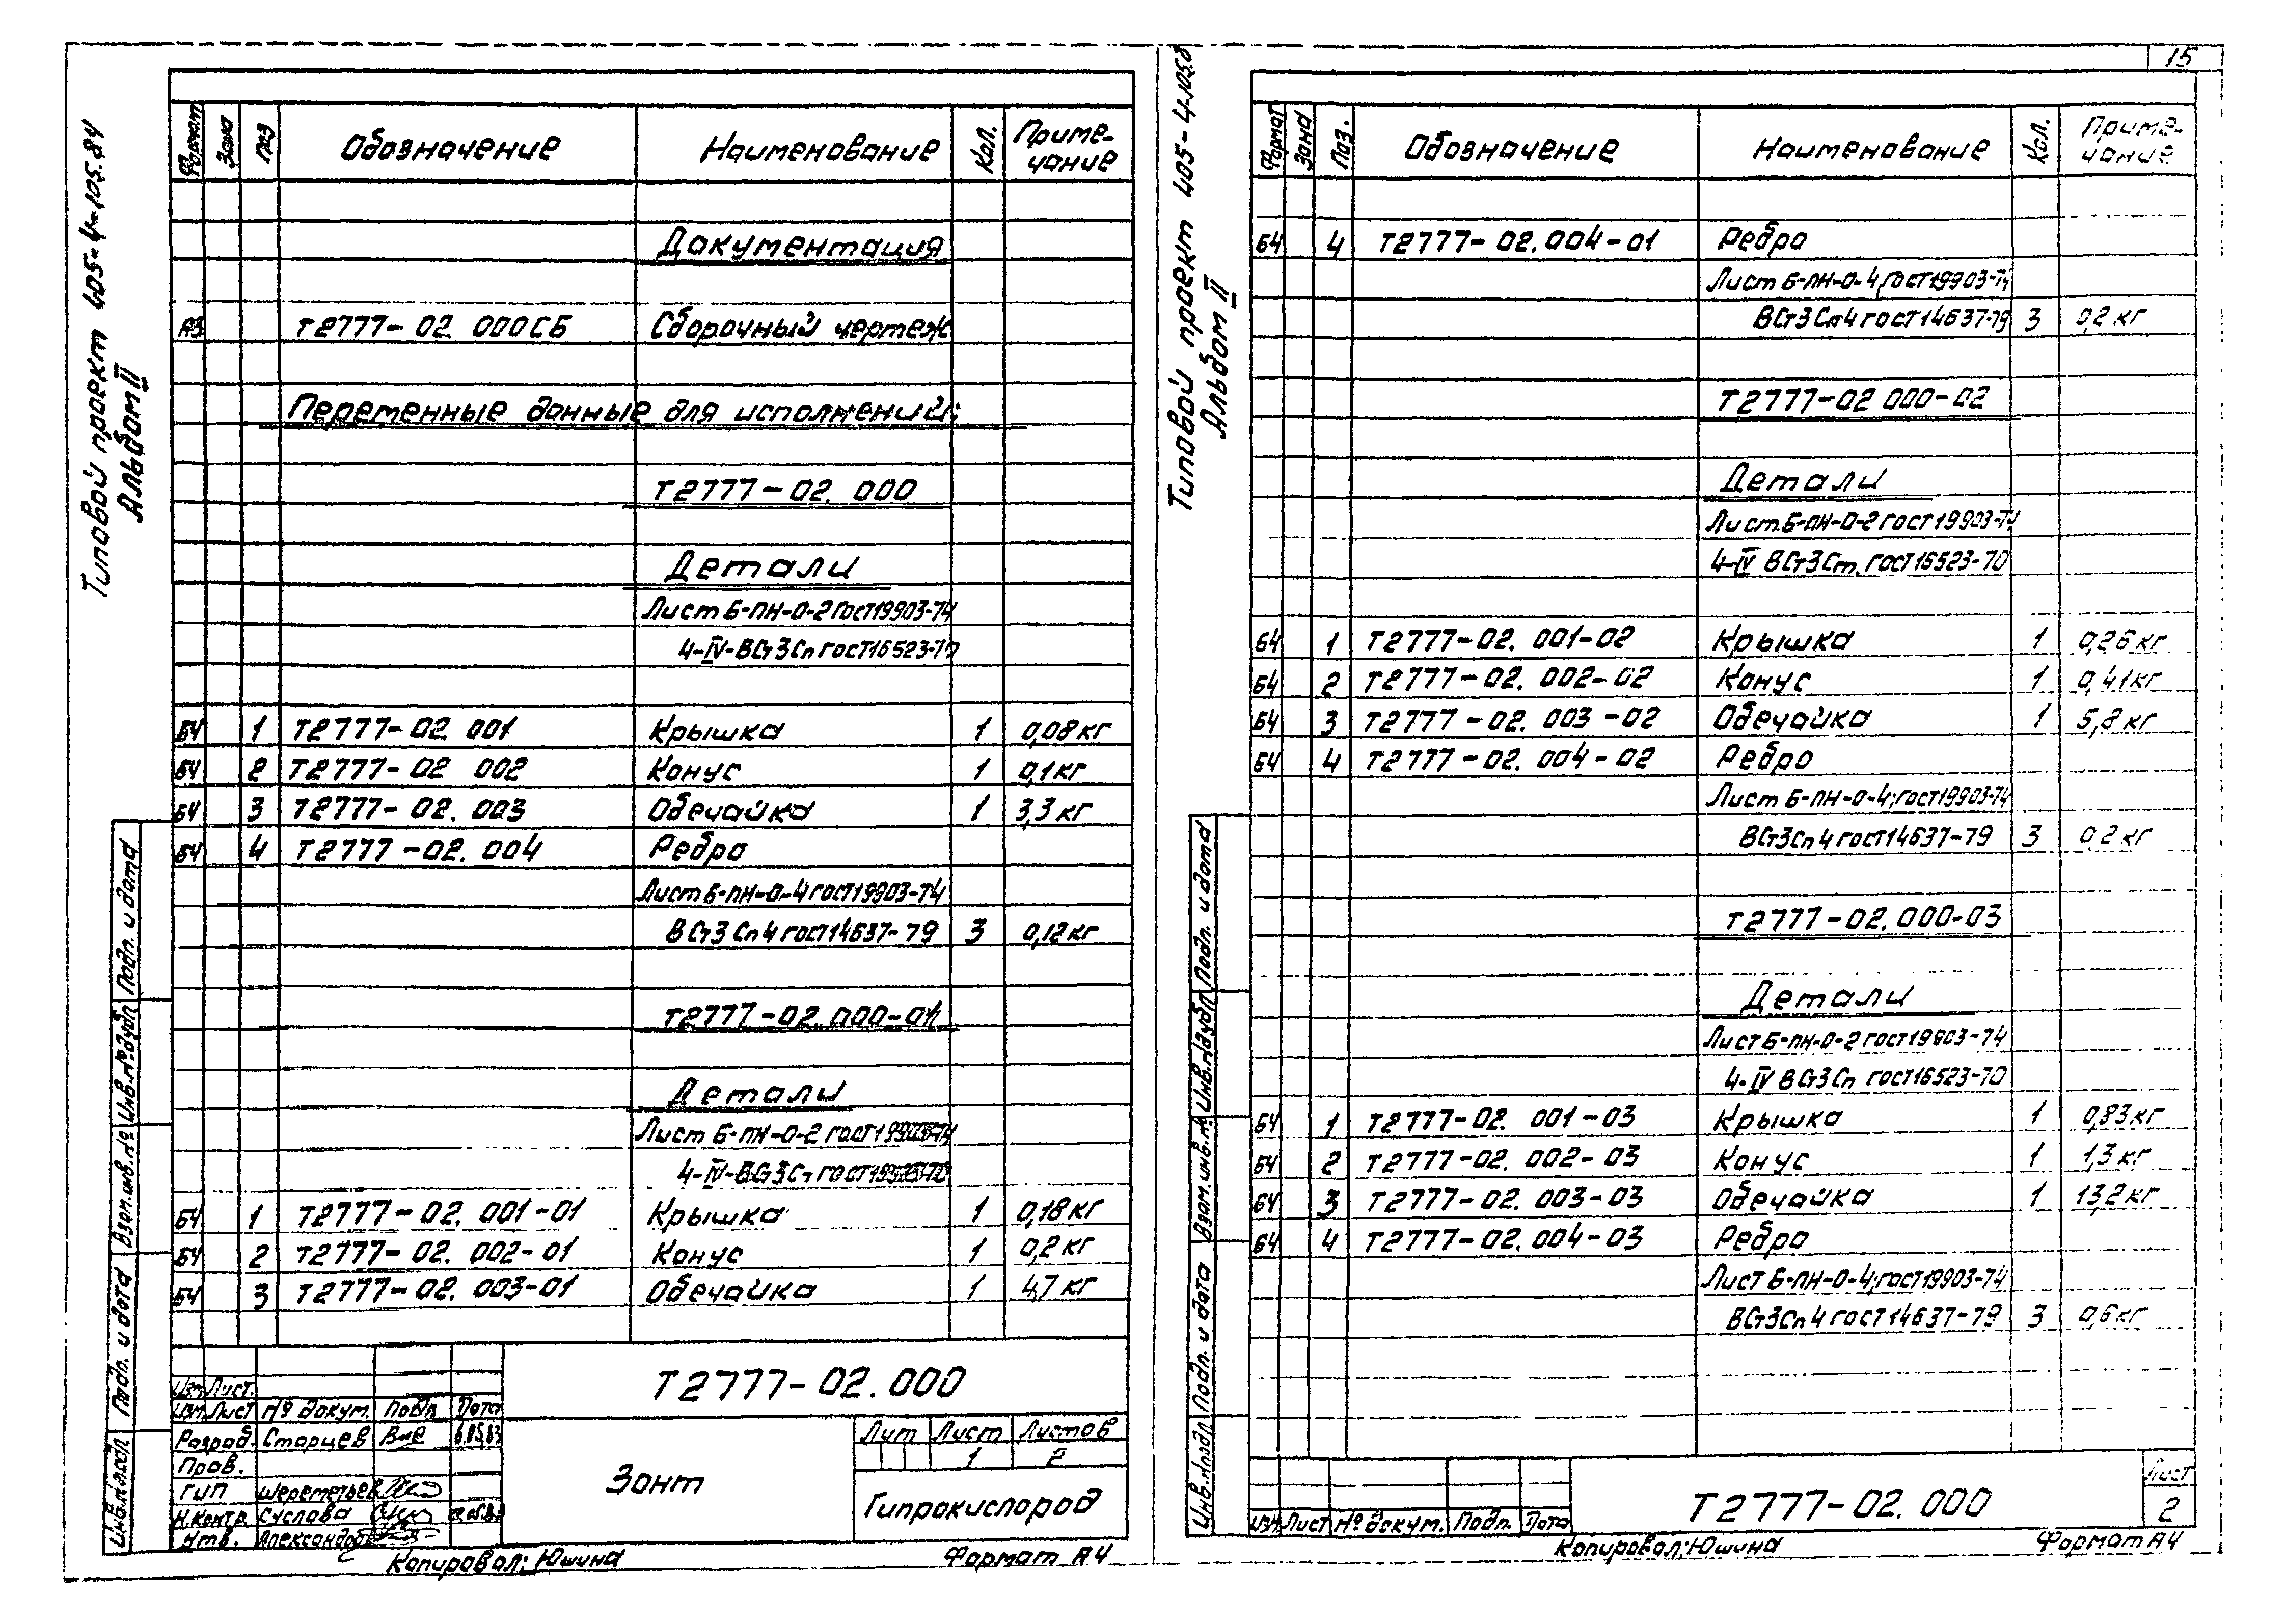 15
Типовой проект 405-4-105.84
Альбом II
Формат Зона Поз Обозначение Наименование Кол. Приме-
чание
Документация
А3 Т2777-02.000СБ Сборочный чертеж
Переменные данные для исполнений:
Т2777-02.000
Детали
Лист Б-ПН-0-2 ГОСТ19903-74
4-IV-ВСт3Сп ГОСТ16523-70
БЧ 1 Т2777-02.001 Крышка 1 0,08кг
БЧ 2 Т2777-02 002 Конус 1 0,1кг
БЧ 3 Т2777-02.003 Обечайка 1 3,3кг
БЧ 4 Т2777-02.004 Ребро
Лист Б-ПН-0-4 ГОСТ19903-74
ВСт3Сп4 ГОСТ14637-79 3 0,12кг
Т2777-02.000-01
Детали
Лист Б-ПН-0-2 ГОСТ19903-74
4-IV-ВСт3Ст
БЧ 1 Т2777-02.001-01 Крышка 1 0,18кг
БЧ 2 Т2777-02.002-01 Конус 1 0,2кг
БЧ 3 Т2777-02.003-01 Обечайка 1 4,7кг
Подп. и дата
Инв.№дубл
Взам.инв.№
Подп. и дата
Инв.№подл
Изм Лист.
Изм Лист № докум. Подп Дата
Разраб. Старцев
Пров.
ГИП Шереметьев
Н.контр. Суслова
Утв. Александров
Т2777-02.000
Зонт
Лит Лист Листов
1 2
Гипрокислород
Копировал: Юшина Формат А4
Типовой проект 405-4-105.8
Альбом II
Формат Зона Поз. Обозначение Наименование Кол. Приме-
чание
БЧ 4 Т2777-02.004-01 Ребро
Лист Б-ПН-0-4, ГОСТ19903-74
ВСт3Сп4 ГОСТ14637-79 3 0,2кг
Т2777-02 000-02
Детали
Лист Б-ПН-0-2 ГОСТ19903-74
4-IV ВСт3Ст. ГОСТ16523-70
БЧ 1 Т2777-02.001-02 Крышка 1 0,26кг
БЧ 2 Т2777-02.002-02 Конус 1 0,41кг
БЧ 3 Т2777-02.003-02 Обечайка 1 5,8кг
БЧ 4 Т2777-02.004-02 Ребро
Лист Б-ПН-0-4; ГОСТ19903-74
ВСт3Сп4 ГОСТ14637-79 3 0,2кг
Т2777-02.000-03
Детали
Лист Б-ПН-0-2 ГОСТ19903-74
4-IV ВСт3Сп ГОСТ16523-70
БЧ 1 Т2777-02. 001-03 Крышка 1 0,83кг
БЧ 2 Т2777-02. 002-03 Конус 1 1,3кг
БЧ 3 Т2777-02. 003-03 Обечайка 1 13,2кг
БЧ 4 Т2777-02.004-03 Ребро
Лист Б-ПН-0-4; ГОСТ19903-74
ВСт3Сп4 ГОСТ14637-79 3 0,6кг
Подп. и дата
Инв.№дубл
Взам.инв.№
Подп. и дата
Инв.№подл
Изм Лист № докум. Подп. Дата
Т2777-02.000
Лист
2
Копировал: Юшина Формат А4